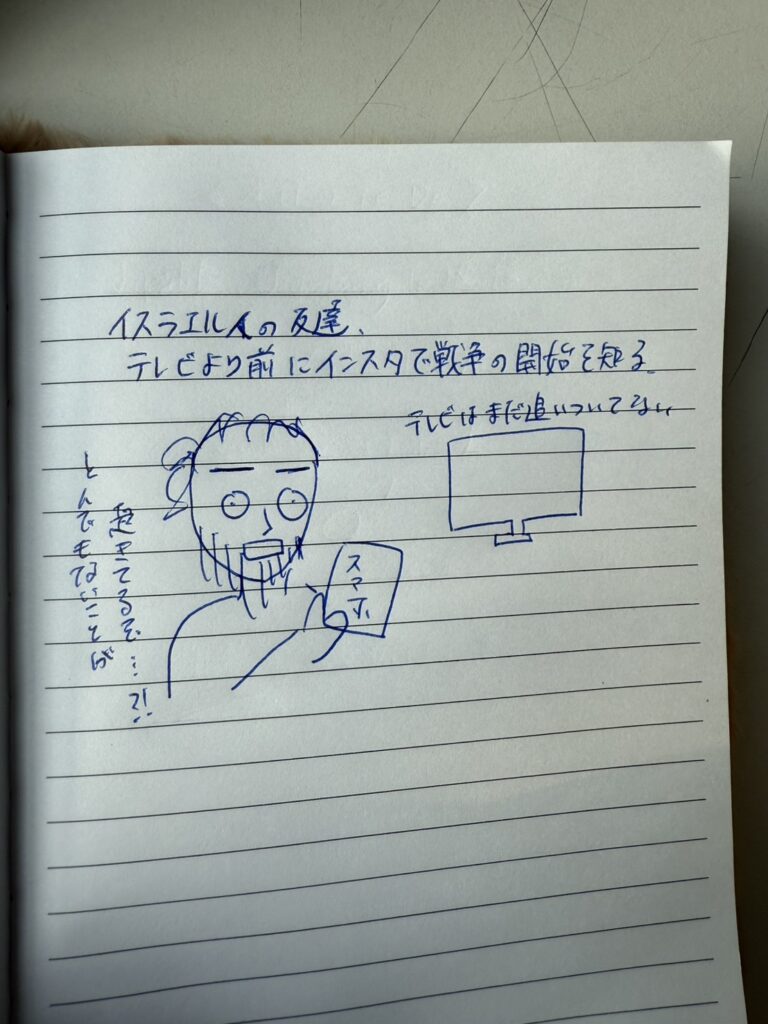 イスラエル人の友達、
テレビより前にインスタで戦争の開始を知る。
テレビはまだ追いついてない
とんでもないことが
起きてるぞ…?!
スマホ